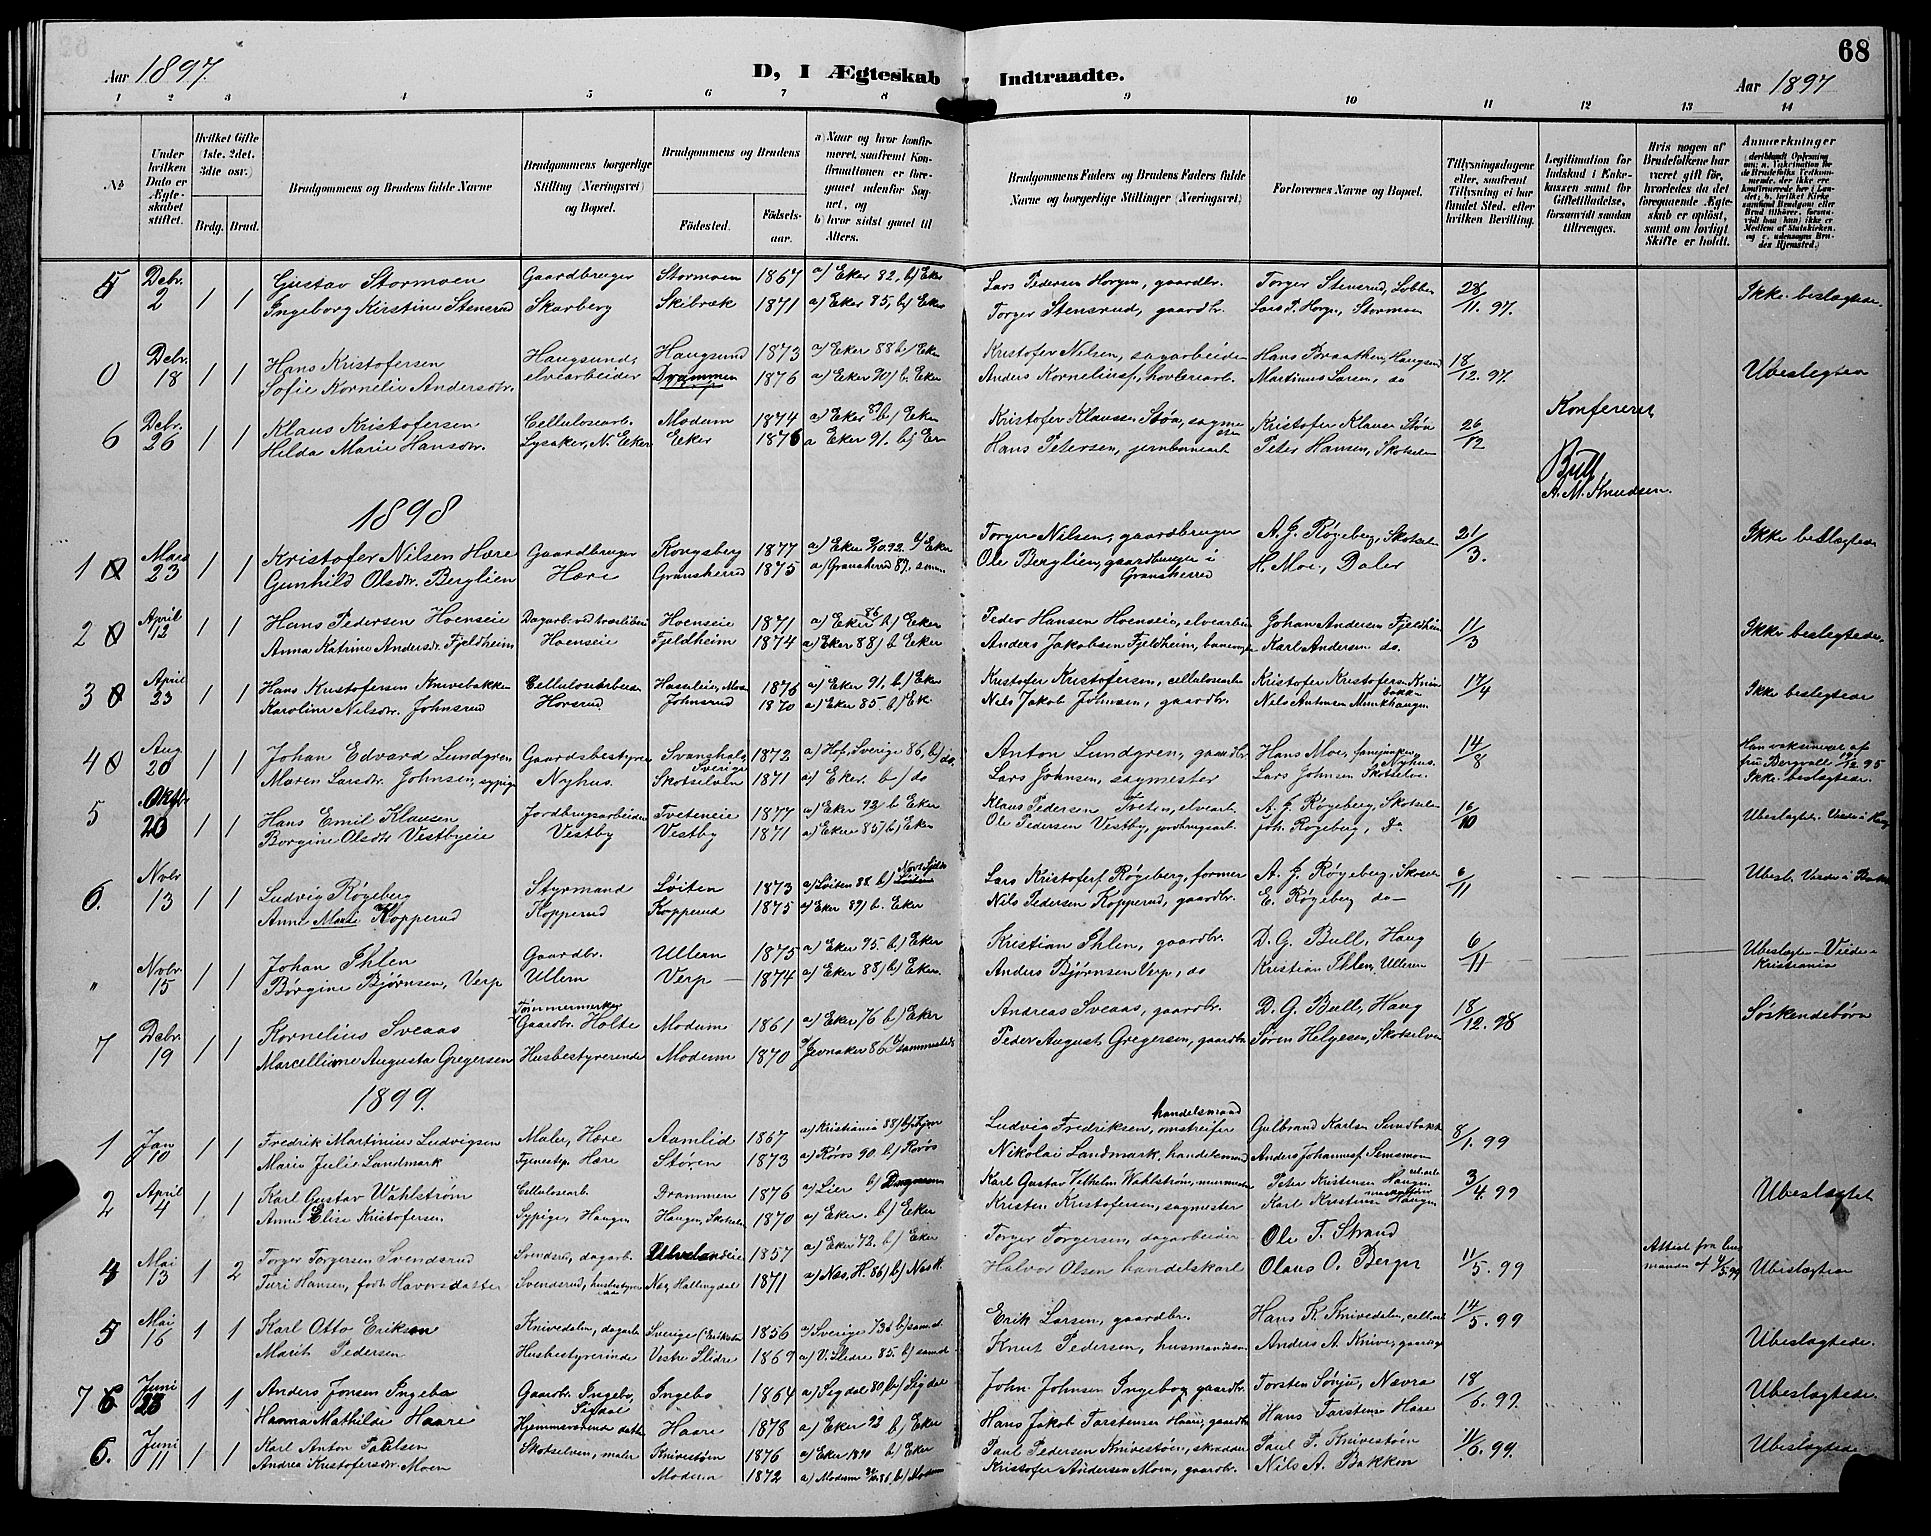 68
Aar 1897.
D, I Ægteskab Indtraadte.
Aar 1897
1 2 3 4 5 6 7 8 9 10 11 12 13 14
No
Under hvilken Dato er Ægteskabet stiftet.
Hvilket Gifte (1ste, 2det, 3die osv.)
Brdg. Brud.
Brudgommens og Brudens fulde Navne
Brudgommens borgerlige Stilling (Næringsvei) og Bopæl.
Brudgommens og Brudens
Fødested. Fødselsaar.
a) Naar og hvor konfirmeret, saafremt Konfirmationen er foregaaet udenfor Sognet, og
b) hvor sidst gaaet til Alters.
Brudgommens Faders og Brudens Faders fulde Navne og borgerlige Stillinger (Næringsvei)
Forlovernes Navne og Bopæl.
Tillysningsdagene eller, saafremt Tillysning ei har fundet Sted, efter hvilken Bevilling.
Legitimation for Indskud i Enkekassen samt for Giftetilladelse, forsaavidt saadan tiltrænges.
Hvis nogen af Brudefolkene har været gift før, hvorledes da det foregaaende Ægteskab er opløst, samt om lovligt Skifte er holdt.
Anmærkninger
5 Debr. 2 1 1 Gustav Stormoen Gaardbruger Stormoen 1867 a) Eker 82, b) Eker Lars Pedersen Horgen, gaardbr. Torger Stensrud, Lobben 28/11. 97. Ikke beslægtede.
Ingeborg Kirstine Stensrud Skarberg Skibræk 1871 a) Eker 85, b) Eker Torger Stensrud, gaardbr. Lars P. Horge, Stormoen
0 Debr. 18 1 1 Hans Kristofersen Haugsund, Haugsund 1873 a) Eker 88 b) Eker Kristofer Nilsen, sagarbeider Hans Braathen, Haugsund 18/12. 97. Ubeslægtede
Sofie Kornelie Andersdr. elvearbeider Drammen 1876 a) Eker 90) b. Eker Anders Kornelius., høvleriarb. Martinus Larsen, do
6 Debr. 26 1 1 Klaus Kristofersen Cellulosearb. Modum 1874 a) Eker 89 b) Eker Kristofer Klausen Støa, sagmester Kristofer Klausen Støa 26/12 Konfereret
Hilda Marie Hansdr. Lysaker, N. Eker Eker 1876 a Eker 91. b) Er Hans Petersen, jernbanearb Peter Hansen, Skotselv
Bull
A. M. Knudsen.
1898
1 Mars 23 1 1 Kristofer Nilsen Hære Gaardbruger Kongsberg 1877 a) Eker 92. b) Eker Torger Nilsen, gaardbruger A. J. Røgeberg, Skotselv 21/3. Ikke beslægtede
Gunhild Olsdr. Berglien Hære Gransherred 1875 a) Gransherred 89. Ole Berglien, gaardbruger i Gransherred H. Moe, Daler
2 April 12 1 1 Hans Pedersen Hoenseie Dagarb. ved træsliberi Hoenseie 1871 a) Eker 86 b) Eker Peder Hansen Hoenseie, elvearbeider Johan Andersen Fjeldheim 11/3 Ikke beslægtede.
Anna Katrine Andersdr. Fjeldheim Hoenseie Fjeldheim 1874 a) Eker 88) b Eker Anders Jakobsen Fjeldheim, Karl Andersen do.
3 April 23 1 1 Hans Kristofersen Knivebakken Cellulosearbeider 1876 a) Eker 91, b) Eker Kristofer Kristofersen, cellulosearb Kristofer Kristofersen Knivebakken 17/4 Ikke beslægtede
Karoline Nilsdr. Johnsrud Horsrud Johnsrud 1870 a) Eker 85. b) Ek. Nils Jakob Johnsen, gaardbr. Nils Antonsen Munkhaugen
4 Aug 20 1 1 Johan Edvard Lundgren Gaardsbestyrer Svanshals, Sverige 1872 a) Hof, Sverige 86, b) do. Anton Lundgren, gaardbr Hans Moe, Nyhus. 14/8 Han vaksineret af fru Bergvall 19/12 95 Ikke beslægtede.
Maren Larsdr. Johnsen, sypige Nyhus. Skotselven 1871 a) Eker. b) do Lars Johnsen, sagmester Lars Johnsen Skotselv.
5 Oktbr 20 1 1 Hans Emil Klausen Jordbrugsarbeider Tveteneie 1877 a) Eker 92 b Eker Klaus Pedersen Tveten, elvearb A. J. Røgeberg, Skotselv 16/10 Ubeslægtet. Viede i Haug
Borgine Olsdr. Vestbyeie Vestby Vestby 1871 a) Eker 85) b) Eker Ole Pedersen Vestby, jordbrugsarb. Joh. Røgeberg, Do
6. Nvbr 13 1 1 Ludvig Røgeberg Styrmand Løiten 1873 a) Løiten 88. b) Lars Kristofers Røgeberg, former A. J. Røgeberg, Skotselv 6/11 Ubesl.
Anne Marie Kopperud Kopperud Kopperud 1875 a) Eker 89) b. Eker Nils Pedersen Kopperud, gaardbr. E. Røgeberg do
" Nvbr. 15 1 1 Johan Ihlen Gaardbr. Ullern 1875 a) Eker 95. b) Eker Kristian Ihlen, gaardbr. D. G. Bull, Haug 6/11 Ubeslægtet Viede i Kristiania
Børgine Bjørnsen, Verp Ullern Verp 1874 a) Eker 88) b) Eker. Anders Bjørnsen Verp, do Kristian Ihlen, Ullern
7 Debr. 19 1 1 Kornelius Sveaas Tømmermerker Gaardbr. Holte Modum 1861 a) Eker 76 b) Eker Andreas Sveaas, gaardbr. D. G. Bull, Haug 18/12. 98 Søskendebørn
Marcelline Augusta Gregersen Husbestyrerinde Modum 1870 a) Jevnaker 86 b) sammesteds Peder August Gregersen, gaardbr Søren Helgesen, Skotselven
1899.
1 Jan 10 1 1 Fredrik Martinius Ludvigsen Maler, Hære Aamlid 1867 a) Kristiania 88) b) Ludvig Fredriksen, omstreifer handelsmand Gulbrand Karlsen Sundbakk 8/1. 99
Marie Julie Landmark Tjenestp. Hære Støren 1873 a) Røros 90. b) Røros Nikolai Landmark, handelsmand Anders Johannes. Semsmoen
2 April 4 1 1 Karl Gustav Wahlstrøm Cellulosearb. Drammen 1876 a) Lier b) Drammen Karl Gustav Vilhelm Wahlstrøm, murmester Peter Kristensen Haugen 3/4. 99 Ubeslægtet
Anne Elise Kristofersen Sypige, Haugen Haugen, Skotselv 1870 a) Eker. b) Eker Kristen Kristofersen, sagmester Karl Kristensen Haugen
4 Mai 13 1 2 Torger Torgersen Svendsrud Svendsru, dagarb. Ulvelandeie 1857 a) Eker 72. b) Eker Torger Torgersen, dagarbeider Ole T. Strand 11/5. 99 Ubeslægtede
Turi Hansen, født Havorsdatter Svendsrud, husbestyrer Nes, Hallingdal 1871 a) Næs, H. 86) b) Næs H. Halvor Olsen handelskarl Olaus O. Berger
5 Mai 16 1 1 Karl Otto Erikson Knivedalen, dagarb Sverige 1856 a) Sverige 73 b) samd. Erik Larsen, gaardbr. Hans K. Knivedalen, 14/5. 99 Ubeslægtede.
Marit Pedersen Husbestyrerinde Vestre Slidre 1867 a) V. Slidre 85. b) samd Knut Pedersen, husmandss. Anders A. Knive,
7 6 Juni 23 1 1 Anders Jonsen Ingebo Gaardbr. Ingebo, Sigdal Ingebo 1864 a) Sigdal 80, b) Sigdal John Johnsen Ingebo, gaardbr. Torsten Sønju, Nævra 18/6. 99. Ubeslægtede.
Hanna Mathilde Haare Hjemmeværende datter Haare 1878 a) Eker 92 b) Eker Hans Jakob Torstensen Haare, gaardbr Hans Torstensen Hare
6. Juni 11 1 1 Karl Anton Paulsen Skotselven, maler Knivestøen 1876 a) Eker 1890 b) Eker Paul Pedersen Knivestøen, skrædder Paul P. Knivestøen 11/6. 99. Ubeslægtede
Andrea Kristofersdr. Moen Modum 1872 a) Modum 86 b) Modum Kristofer Andersen Moen, gaardbr. Nils A. Bakken